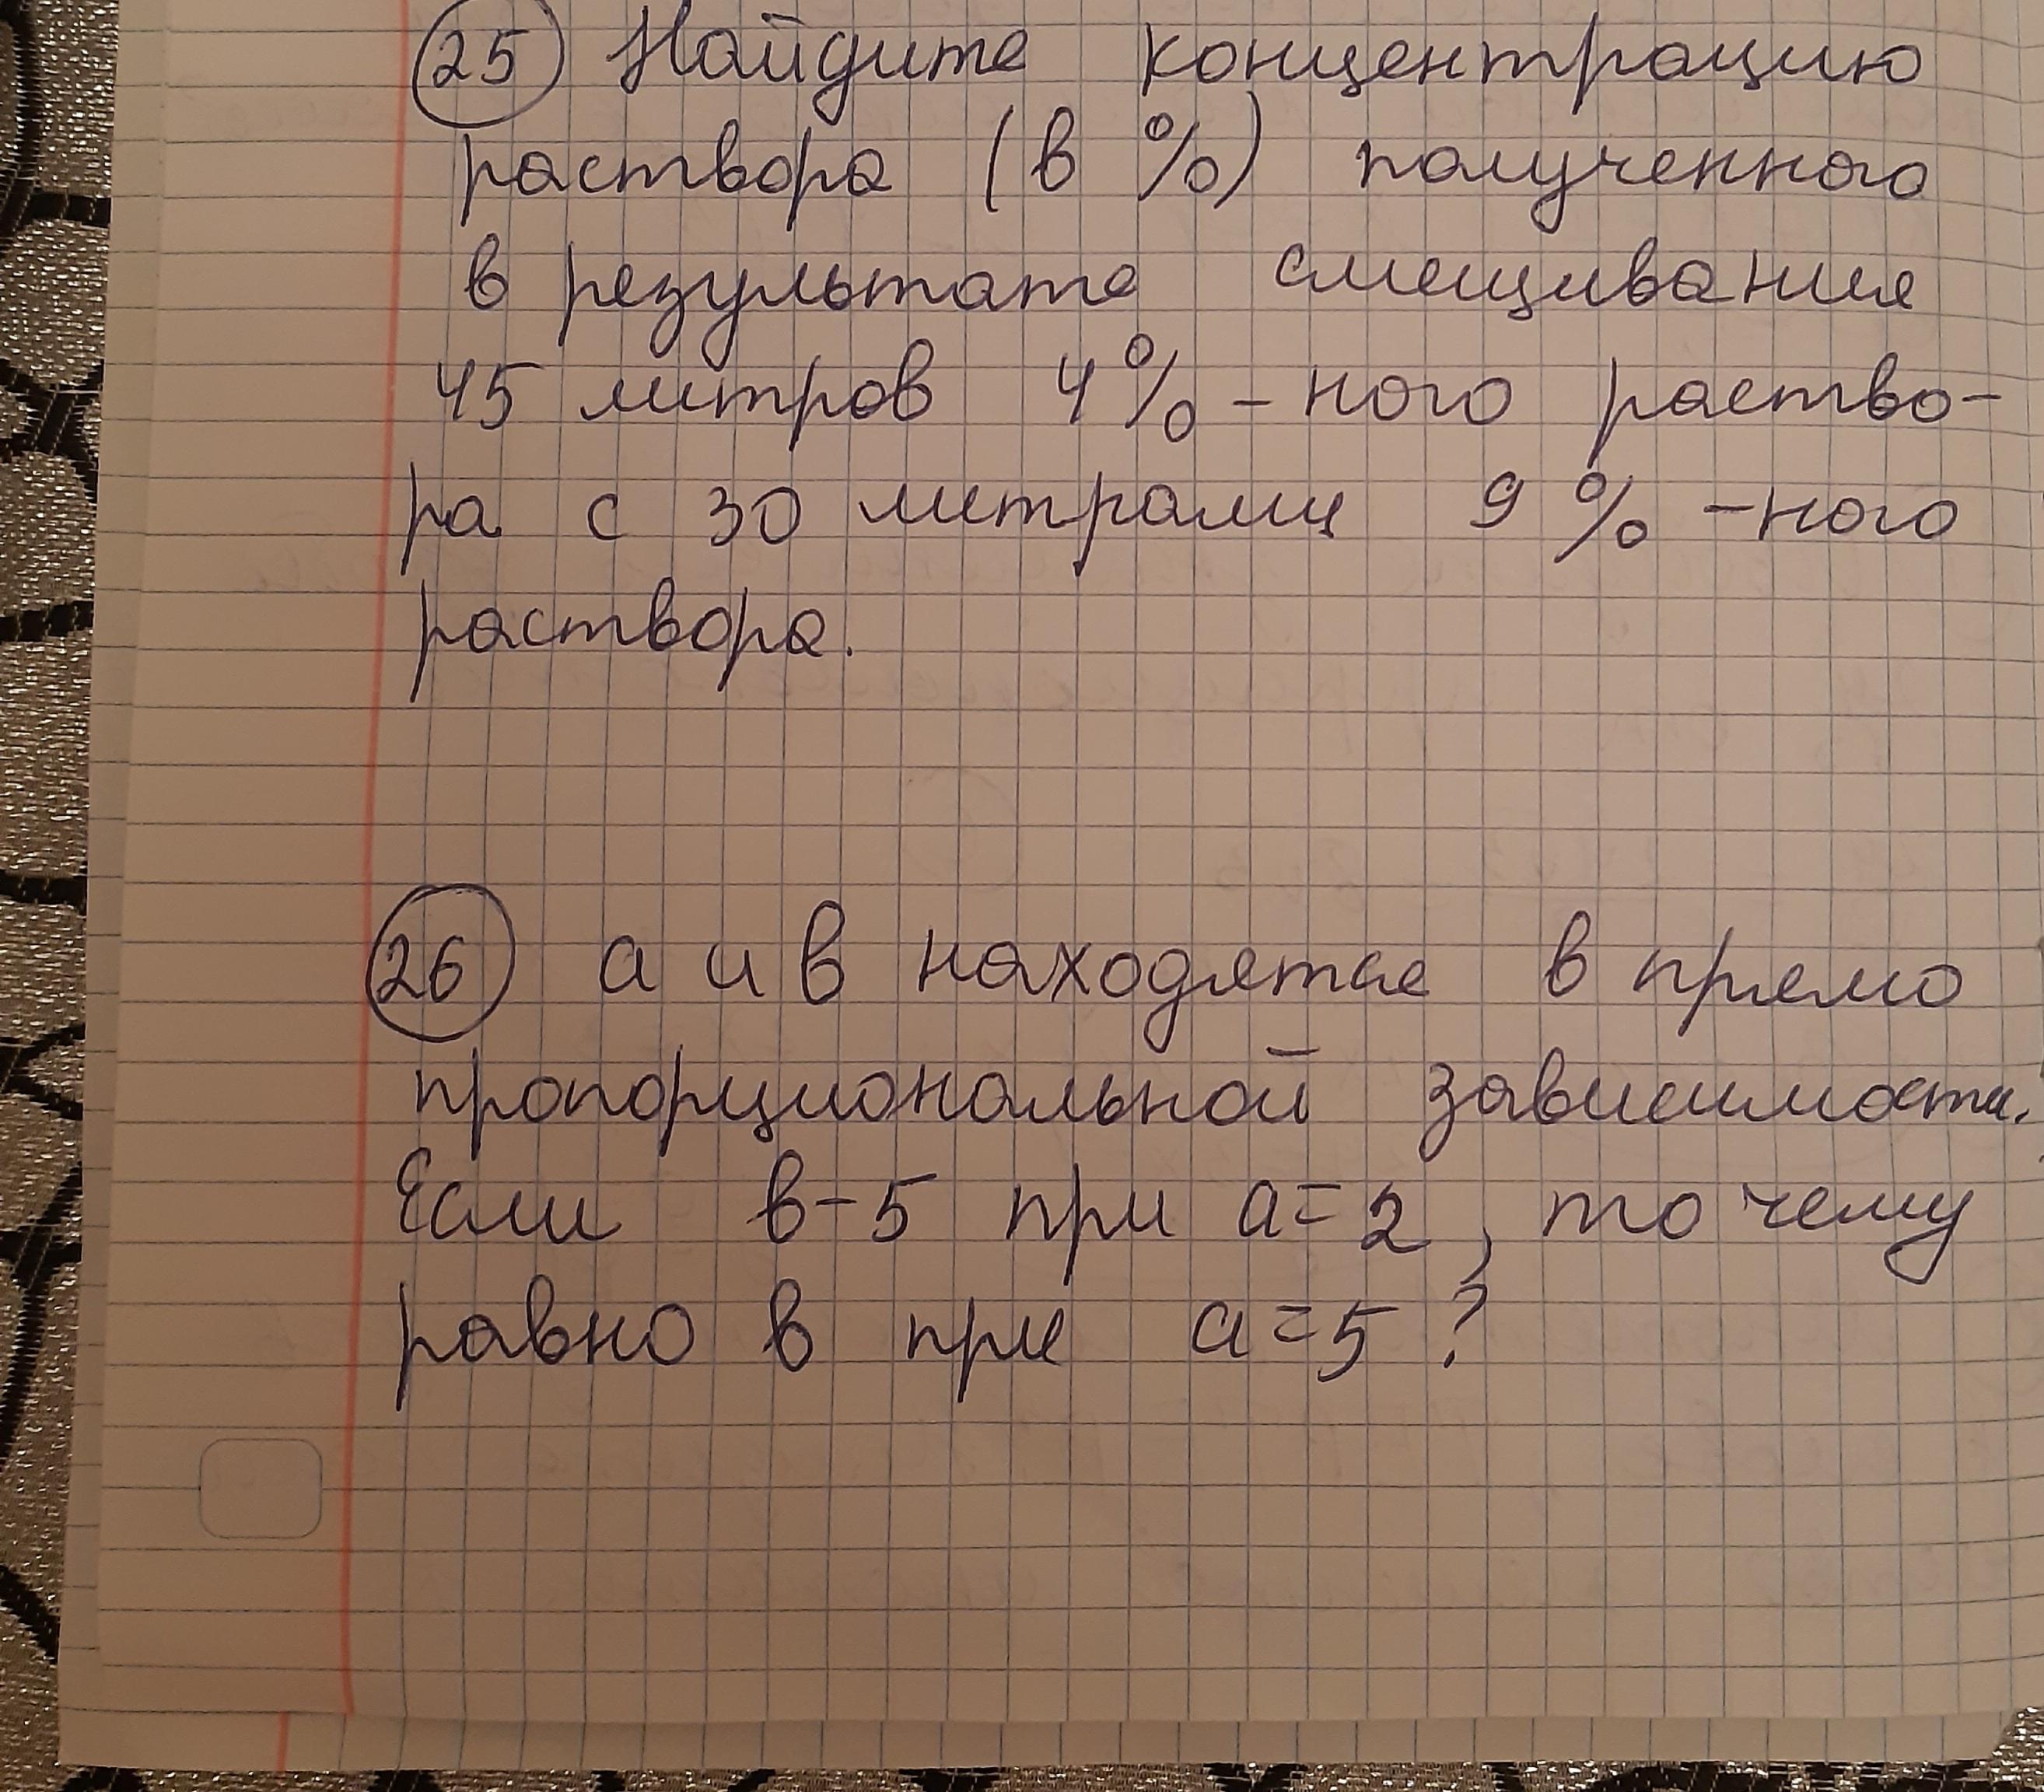 25 Найдите концентрацию
раствора (в %) полученного
в результате смещивания
45 литров 4% - ного раство-
ра с 30 литрами 9% -ного
раствора.
26 а и в находятся в прямо
пропорциональной зависимости.
Если в-5 при а=2, то чему
равно в при а=5?